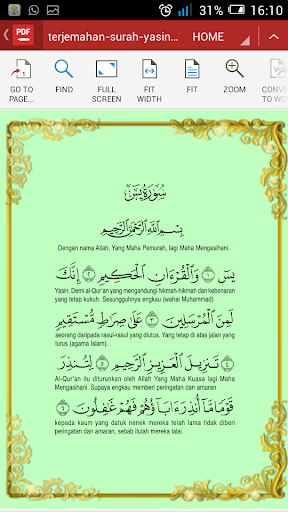 31% 16:10
PDF terjemahan-surah-yasin... HOME
GO TO PAGE... FIND FULL SCREEN FIT WIDTH FIT ZOOM CONVE TO WO
سُورَةُ يسٓ
بِسْمِ اللَّهِ الرَّحْمَٰنِ الرَّحِيمِ
Dengan nama Allah, Yang Maha Pemurah, lagi Maha Mengasihani.
يسٓ ١ وَالْقُرْءَانِ الْحَكِيمِ ٢ إِنَّكَ
Yasin. Demi al-Qur'an yang mengandungi hikmah-hikmah dan kebenaran
yang tetap kukuh. Sesungguhnya engkau (wahai Muhammad)
لَمِنَ الْمُرْسَلِينَ ٣ عَلَىٰ صِرَاطٍ مُسْتَقِيمٍ
seorang daripada rasul-rasul yang diutus. Yang tetap di atas jalan yang
lurus (agama Islam).
٤ تَنزِيلَ الْعَزِيزِ الرَّحِيمِ ٥ لِتُنذِرَ
Al-Qur'an itu diturunkan oleh Allah Yang Maha Kuasa lagi Maha
Mengasihani. Supaya engkau memberi peringatan dan amaran
قَوْمًا مَّا أُنذِرَ ءَابَاؤُهُمْ فَهُمْ غَٰفِلُونَ ٦
kepada kaum yang datuk nenek mereka telah lama tidak diberi
peringatan dan amaran, sebab itulah mereka lalai.